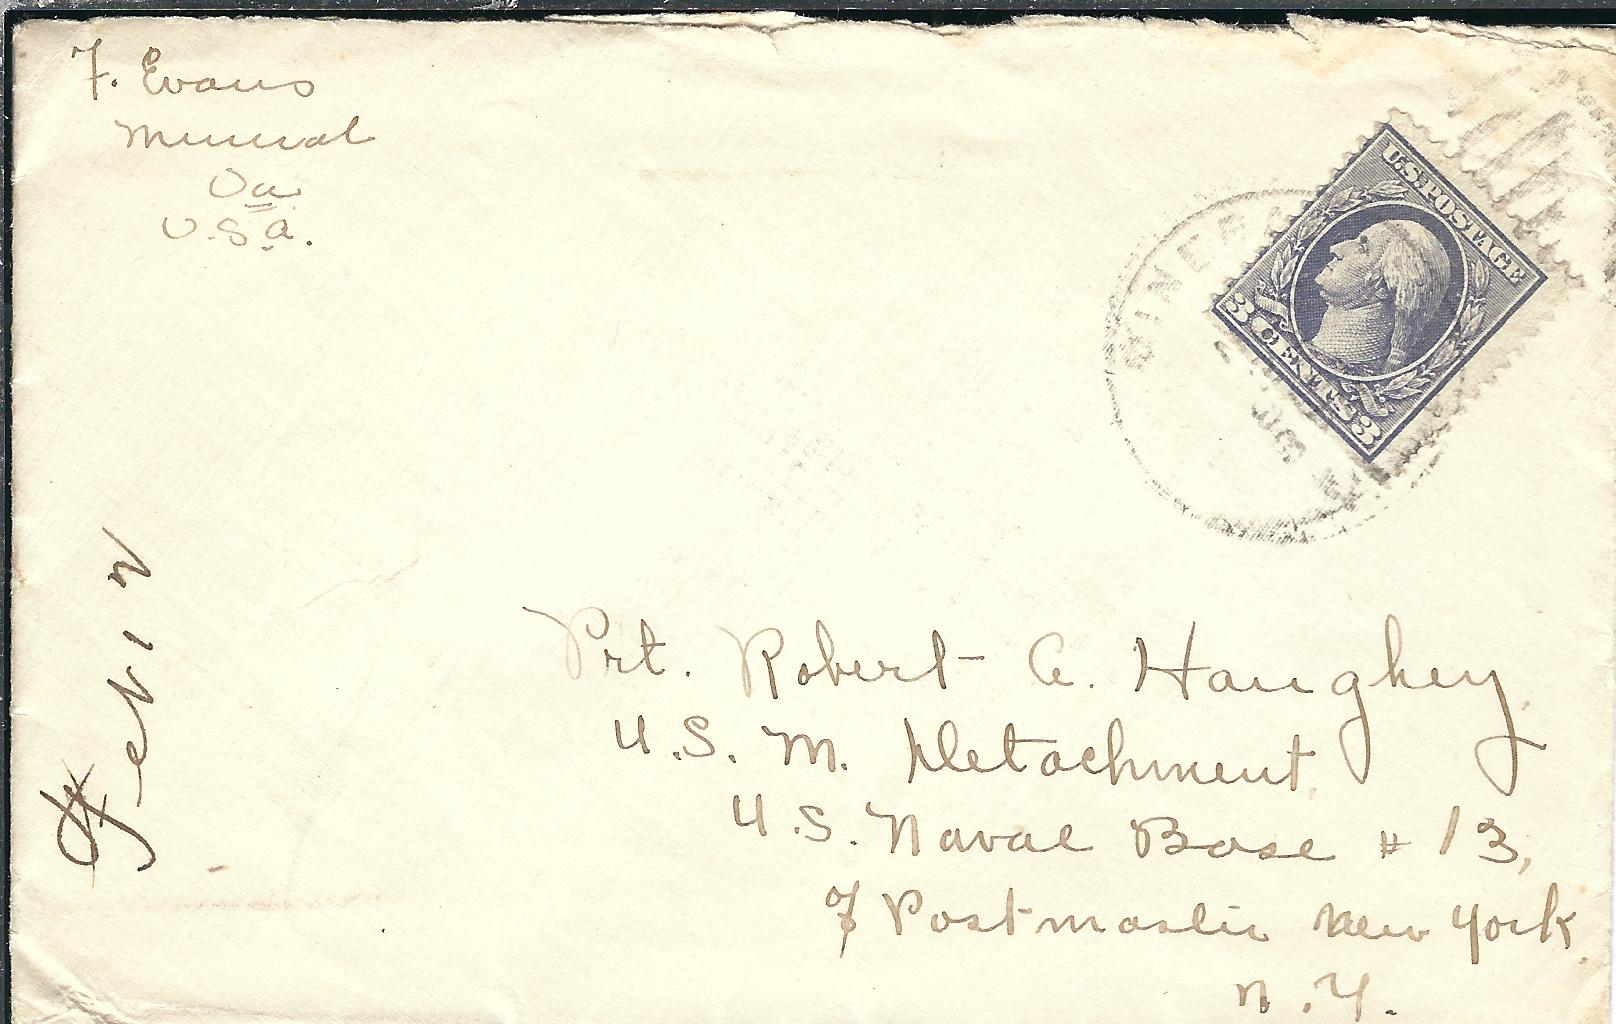 F. Evans
Mineral
Va.
U.S.A.
MINERA
U.S. POSTAGE
3 CENTS 3
Feb 12
Pvt. Robert A. Haughey
U.S. M. Detachment,
U.S. Naval Base # 13,
% Postmaster New York,
N.Y.